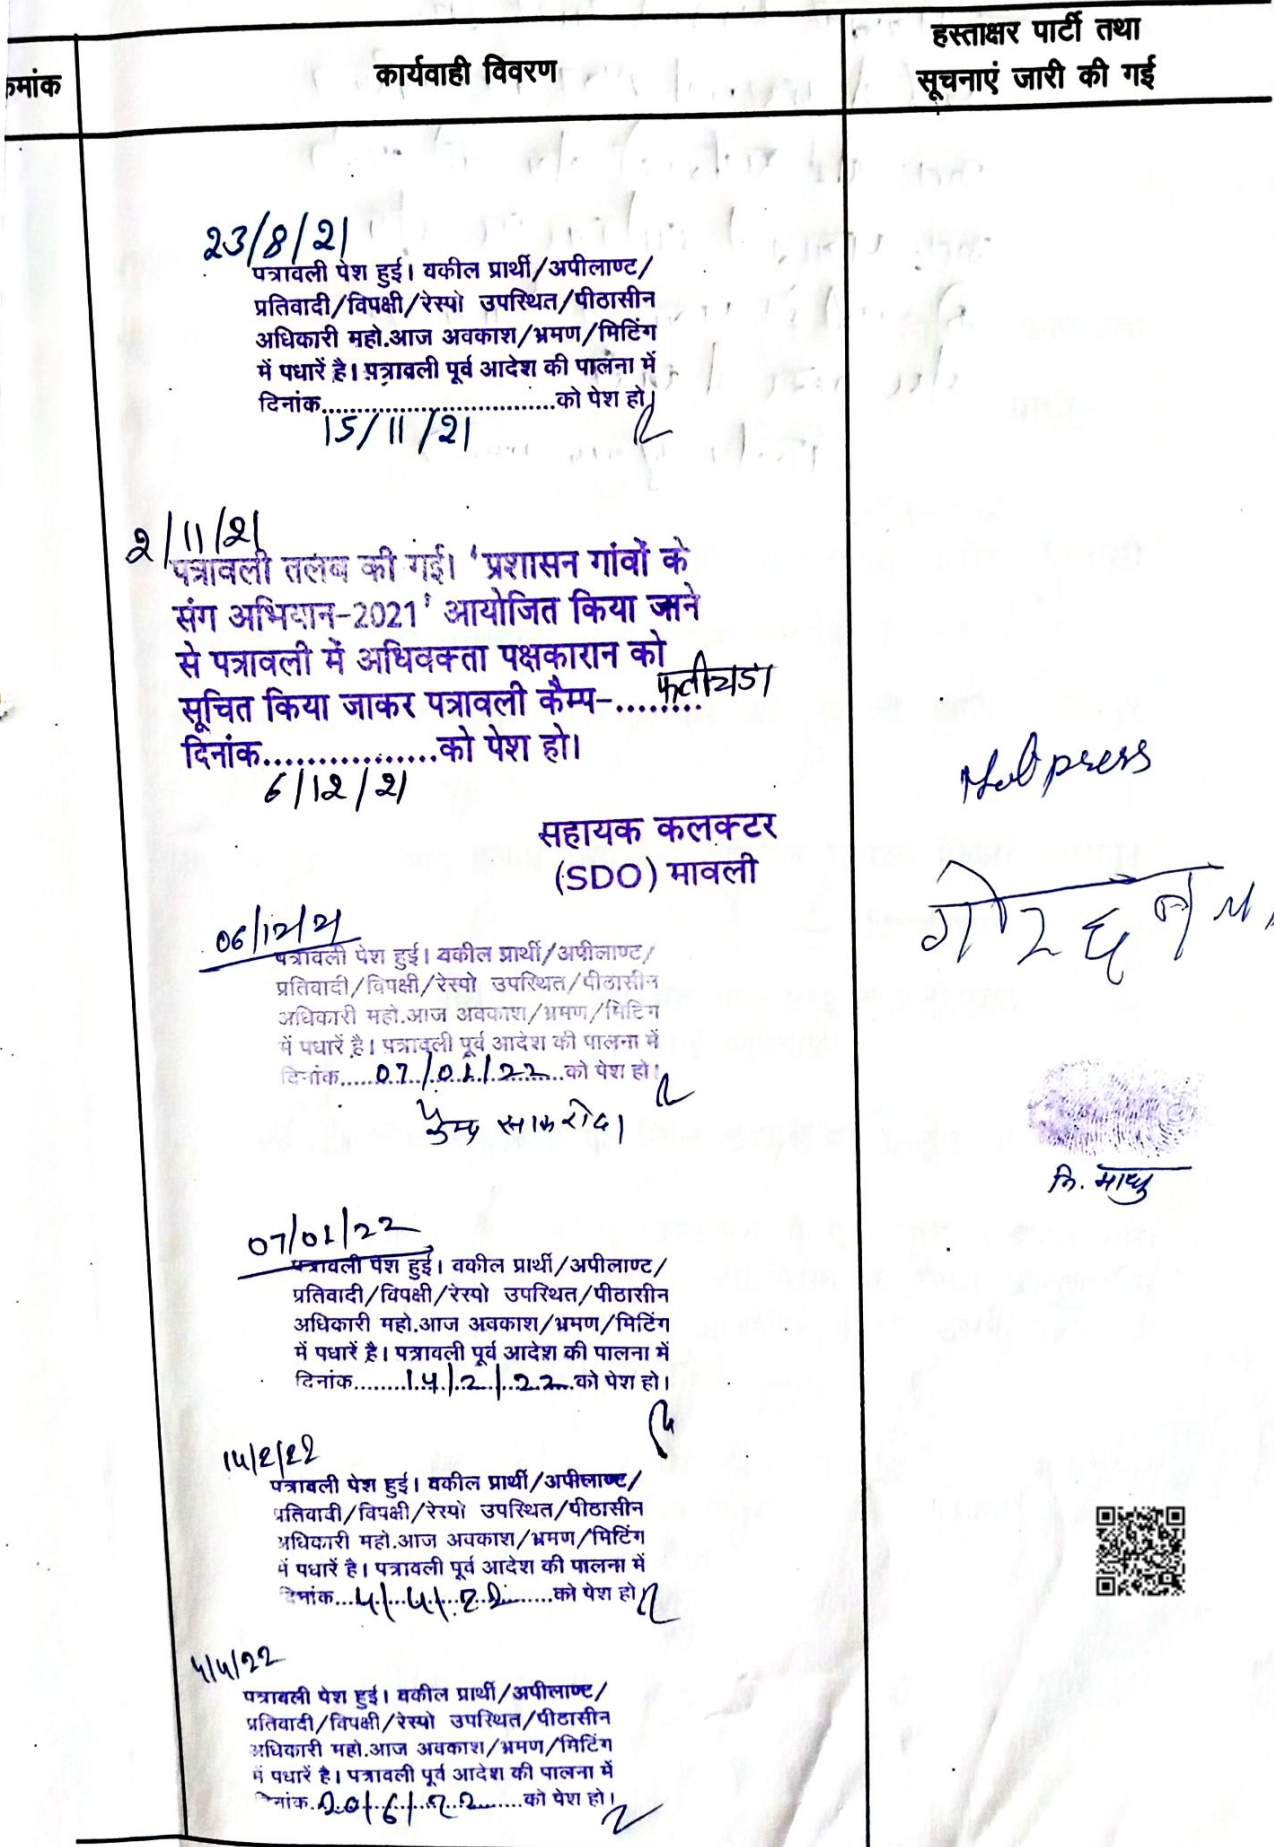 क्रमांक
कार्यवाही विवरण
हस्ताक्षर पार्टी तथा
सूचनाएं जारी की गई
23/8/21
पत्रावली पेश हुई। वकील प्रार्थी/अपीलाण्ट/
प्रतिवादी/विपक्षी/रेस्पो उपस्थित/पीठासीन
अधिकारी महो.आज अवकाश/भ्रमण/मिटिंग
में पधारें है। पत्रावली पूर्व आदेश की पालना में
दिनांक................................को पेश हो।
15/11/21
2/11/21
पत्रावली तलब की गई। 'प्रशासन गांवों के
संग अभियान-2021' आयोजित किया जाने
से पत्रावली में अधिवक्ता पक्षकारान को
सूचित किया जाकर पत्रावली कैम्प-........
दिनांक................को पेश हो।
6/12/21
सहायक कलक्टर
(SDO) मावली
06/12/21
पत्रावली पेश हुई। वकील प्रार्थी/अपीलाण्ट/
प्रतिवादी/विपक्षी/रेस्पो उपस्थित/पीठासीन
अधिकारी महो.आज अवकाश/भ्रमण/मिटिंग
में पधारें है। पत्रावली पूर्व आदेश की पालना में
दिनांक.....07/01/22...को पेश हो।
कैम्प साकरोदा
नि. माधु
07/01/22
पत्रावली पेश हुई। वकील प्रार्थी/अपीलाण्ट/
प्रतिवादी/विपक्षी/रेस्पो उपस्थित/पीठासीन
अधिकारी महो.आज अवकाश/भ्रमण/मिटिंग
में पधारें है। पत्रावली पूर्व आदेश की पालना में
दिनांक........14/2/22.को पेश हो।
14/2/22
पत्रावली पेश हुई। वकील प्रार्थी/अपीलाण्ट/
प्रतिवादी/विपक्षी/रेस्पो उपस्थित/पीठासीन
अधिकारी महो.आज अवकाश/भ्रमण/मिटिंग
में पधारें है। पत्रावली पूर्व आदेश की पालना में
दिनांक...4/4/22.......को पेश हो।
4/4/22
पत्रावली पेश हुई। वकील प्रार्थी/अपीलाण्ट/
प्रतिवादी/विपक्षी/रेस्पो उपस्थित/पीठासीन
अधिकारी महो.आज अवकाश/भ्रमण/मिटिंग
में पधारें है। पत्रावली पूर्व आदेश की पालना में
दिनांक.20/6/22......को पेश हो।